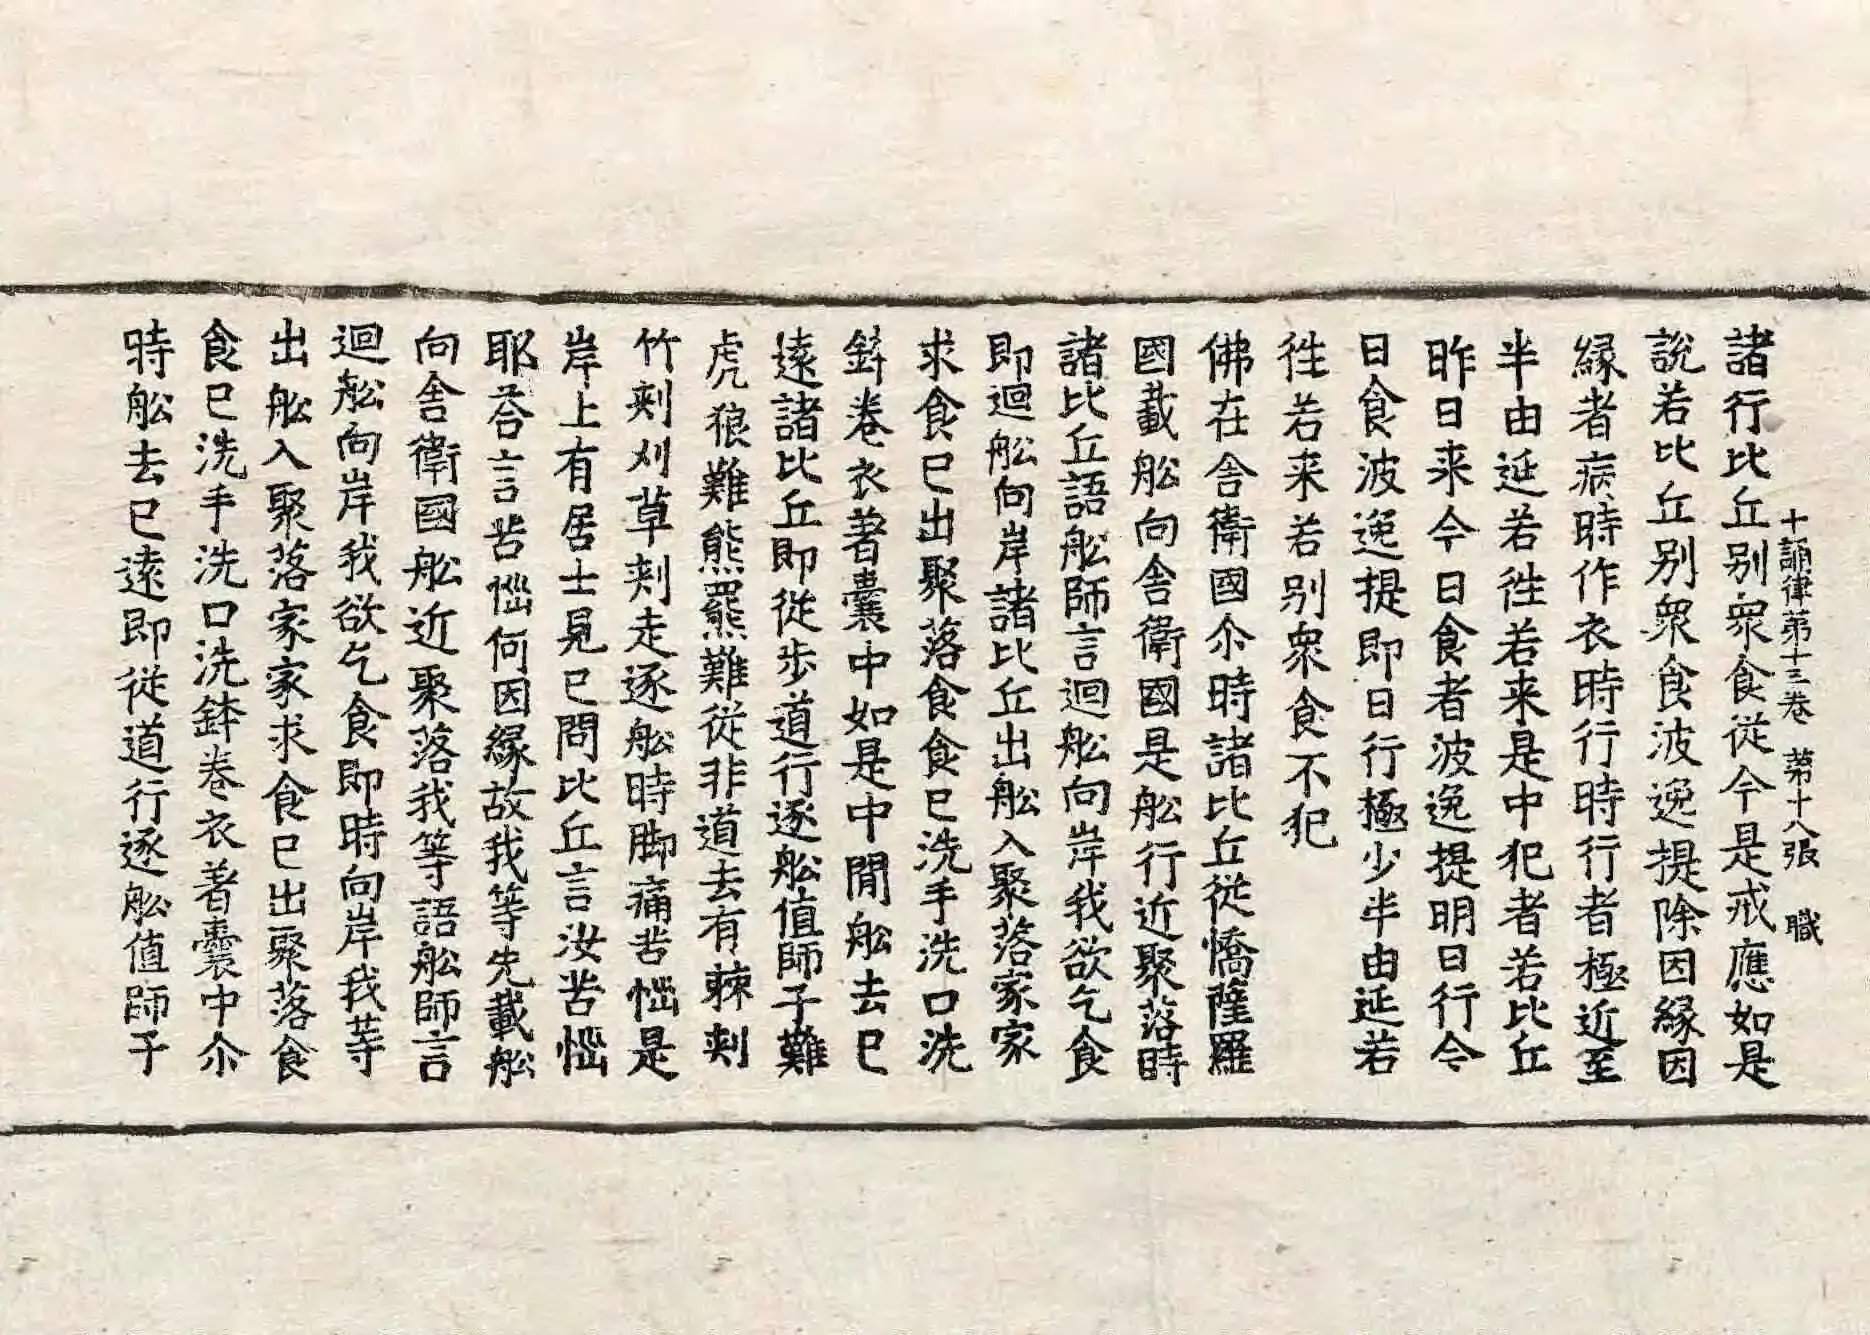 諸行比丘别衆食従今是戒應如是
十誦律第十三卷 第十八張 職
說若比丘别衆食波逸提除因緣因
緣者病時作衣時行時行者極近至
半由延若徃若来是中犯者若比丘
昨日来今日食者波逸提明日行今
日食波逸提即日行極少半由延若
徃若来若别衆食不犯
佛在舍衛國尒時諸比丘従憍薩羅
國載舩向舍衛國是舩行近聚落時
諸比丘語舩師言迴舩向岸我欲乞食
即迴舩向岸諸比丘出舩入聚落家家
求食已出聚落食食已洗手洗口洗
鉢卷衣著囊中如是中閒舩去已
遠諸比丘即従步道行逐舩值師子難
虎狼難熊羆難従非道去有棘刾
竹刾刈草刾走逐舩時脚痛苦惱是
岸上有居士見已問比丘言汝苦惱
耶荅言苦惱何因緣故我等先載舩
向舍衛國舩近聚落我等語舩師言
迴舩向岸我欲乞食即時向岸我等
出舩入聚落家家求食已出聚落食
食已洗手洗口洗鉢卷衣著囊中尒
時舩去已遠即従道行逐舩值師子